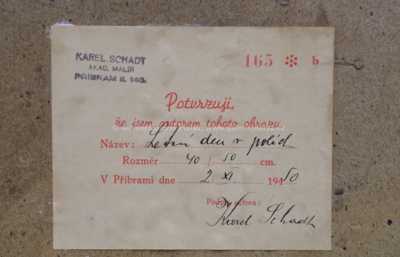 KAREL SCHADT
AKAD. MALÍŘ
PŘÍBRAM II. 140.
165 ✻ b
Potvrzuji,
že jsem autorem tohoto obrazu.
Název: Letní den v polích
Rozměr 40 / 50 cm.
V Příbrami dne 2 XI 1940
Podpis autora:
Karel Schadt